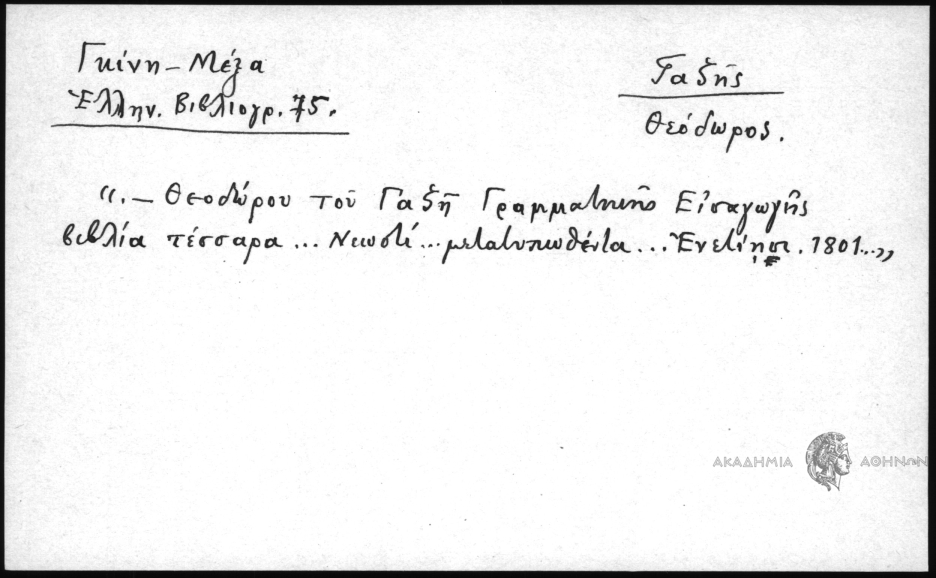 Γκίνη - Μέξα
Ἑλλην. Βιβλιογρ. 75.
Γαζῆς
Θεόδωρος.
“.- Θεοδώρου τοῦ Γαζῆ Γραμματικῆς Εἰσαγωγῆς
βιβλία τέσσαρα ... Νεωστί ... μετατυπωθέντα ... Ἐνετίησι. 1801...„
ΑΚΑΔΗΜΙΑ ΑΘΗΝΩΝ